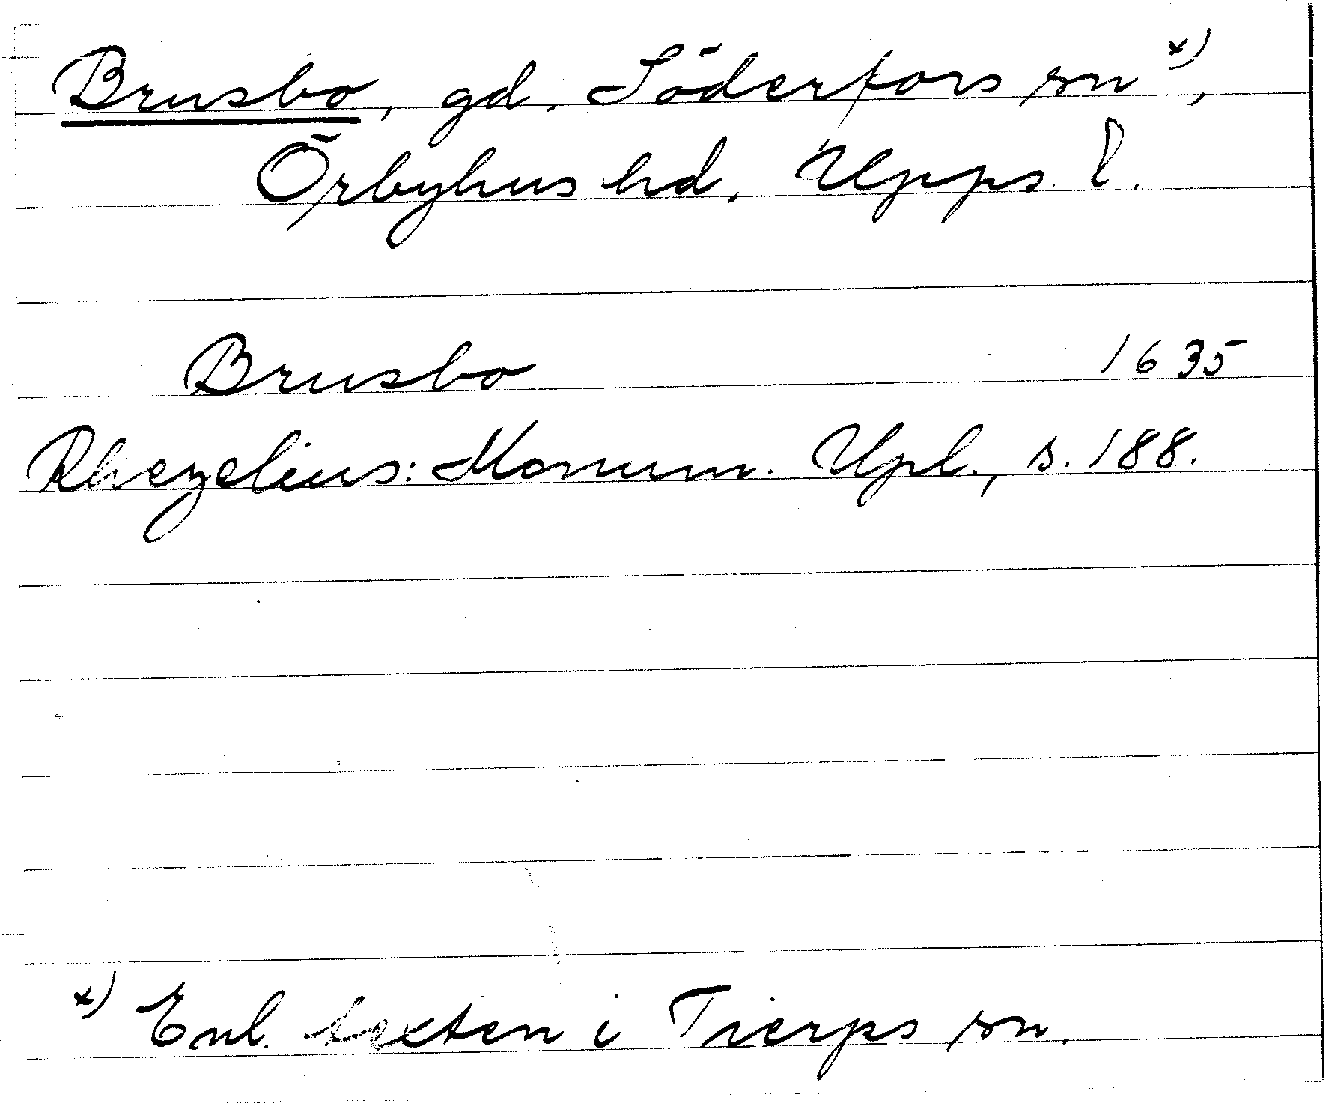 Brusbo, gd. Söderfors sn x),
Örbyhus hd. Upps. l.
Brusbo 1635
Rhezelius: Monum. Upl., s. 188.
x) Enl. texten i Tierps sn.